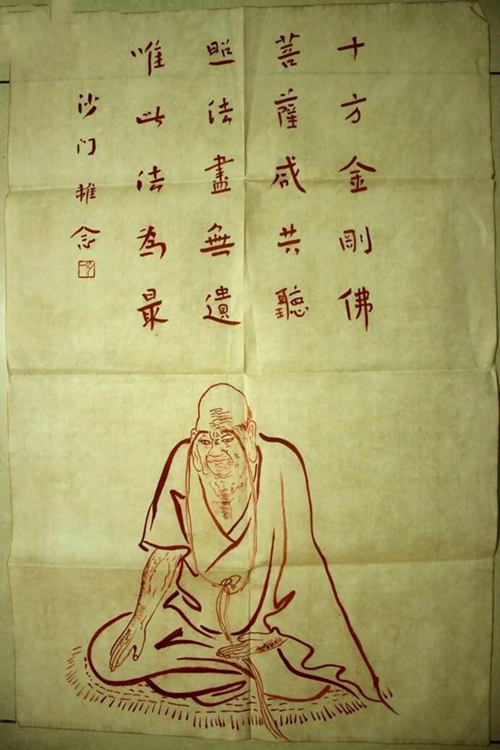 十方金剛佛
菩薩咸共聽
照法盡無遺
唯此法為最
沙门雅念